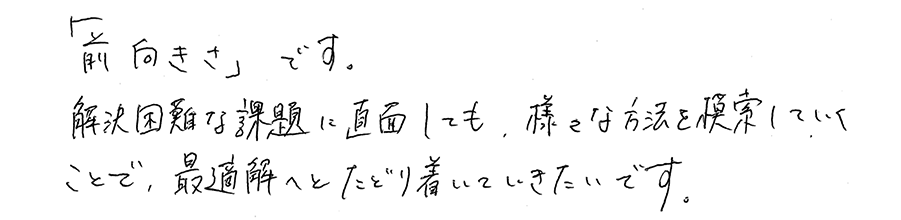 「前向きさ」です。
解決困難な課題に直面しても、様々な方法を模索していく
ことで、最適解へとたどり着いていきたいです。